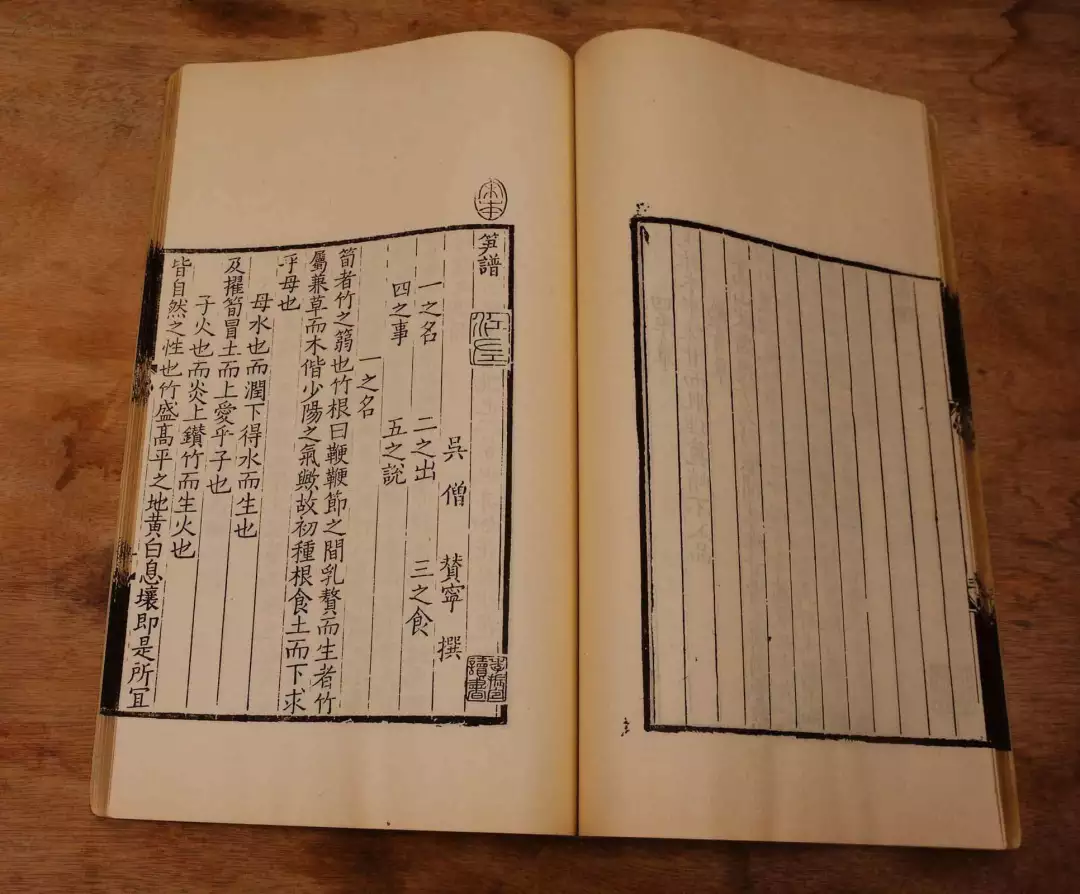 宋本
笋譜
江左
讀書
吳僧 賛寧 撰
一之名 二之出 三之食
四之事 五之說
一之名
筍者竹之篛也竹根曰鞭鞭節之間乳贅而生者竹
屬兼草而木偕少陽之氣歟故初種根食土而下求
乎母也
母水也而潤下得水而生也
及擢筍冒土而上愛乎子也
子火也而炎上鑽竹而生火也
皆自然之性也竹盛高平之地黃白息壤即是所冝